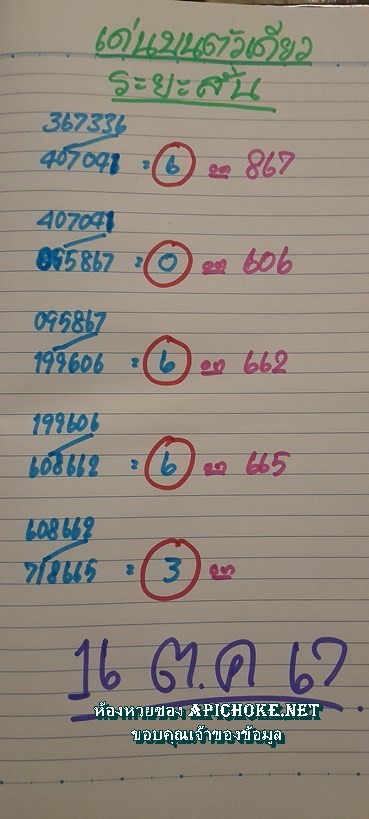 เด่นบนตัวเดียว
ระยะสั้น
367336
407041 = 6 ๓ 867
407041
095867 = 0 ๓ 606
095867
199606 = 6 ๓ 662
199606
608662 = 6 ๓ 665
608662
718665 = 3 ๓
16 ต.ค 67
ห้องหวยซอง APICHOKE.NET
ขอบคุณเจ้าของข้อมูล